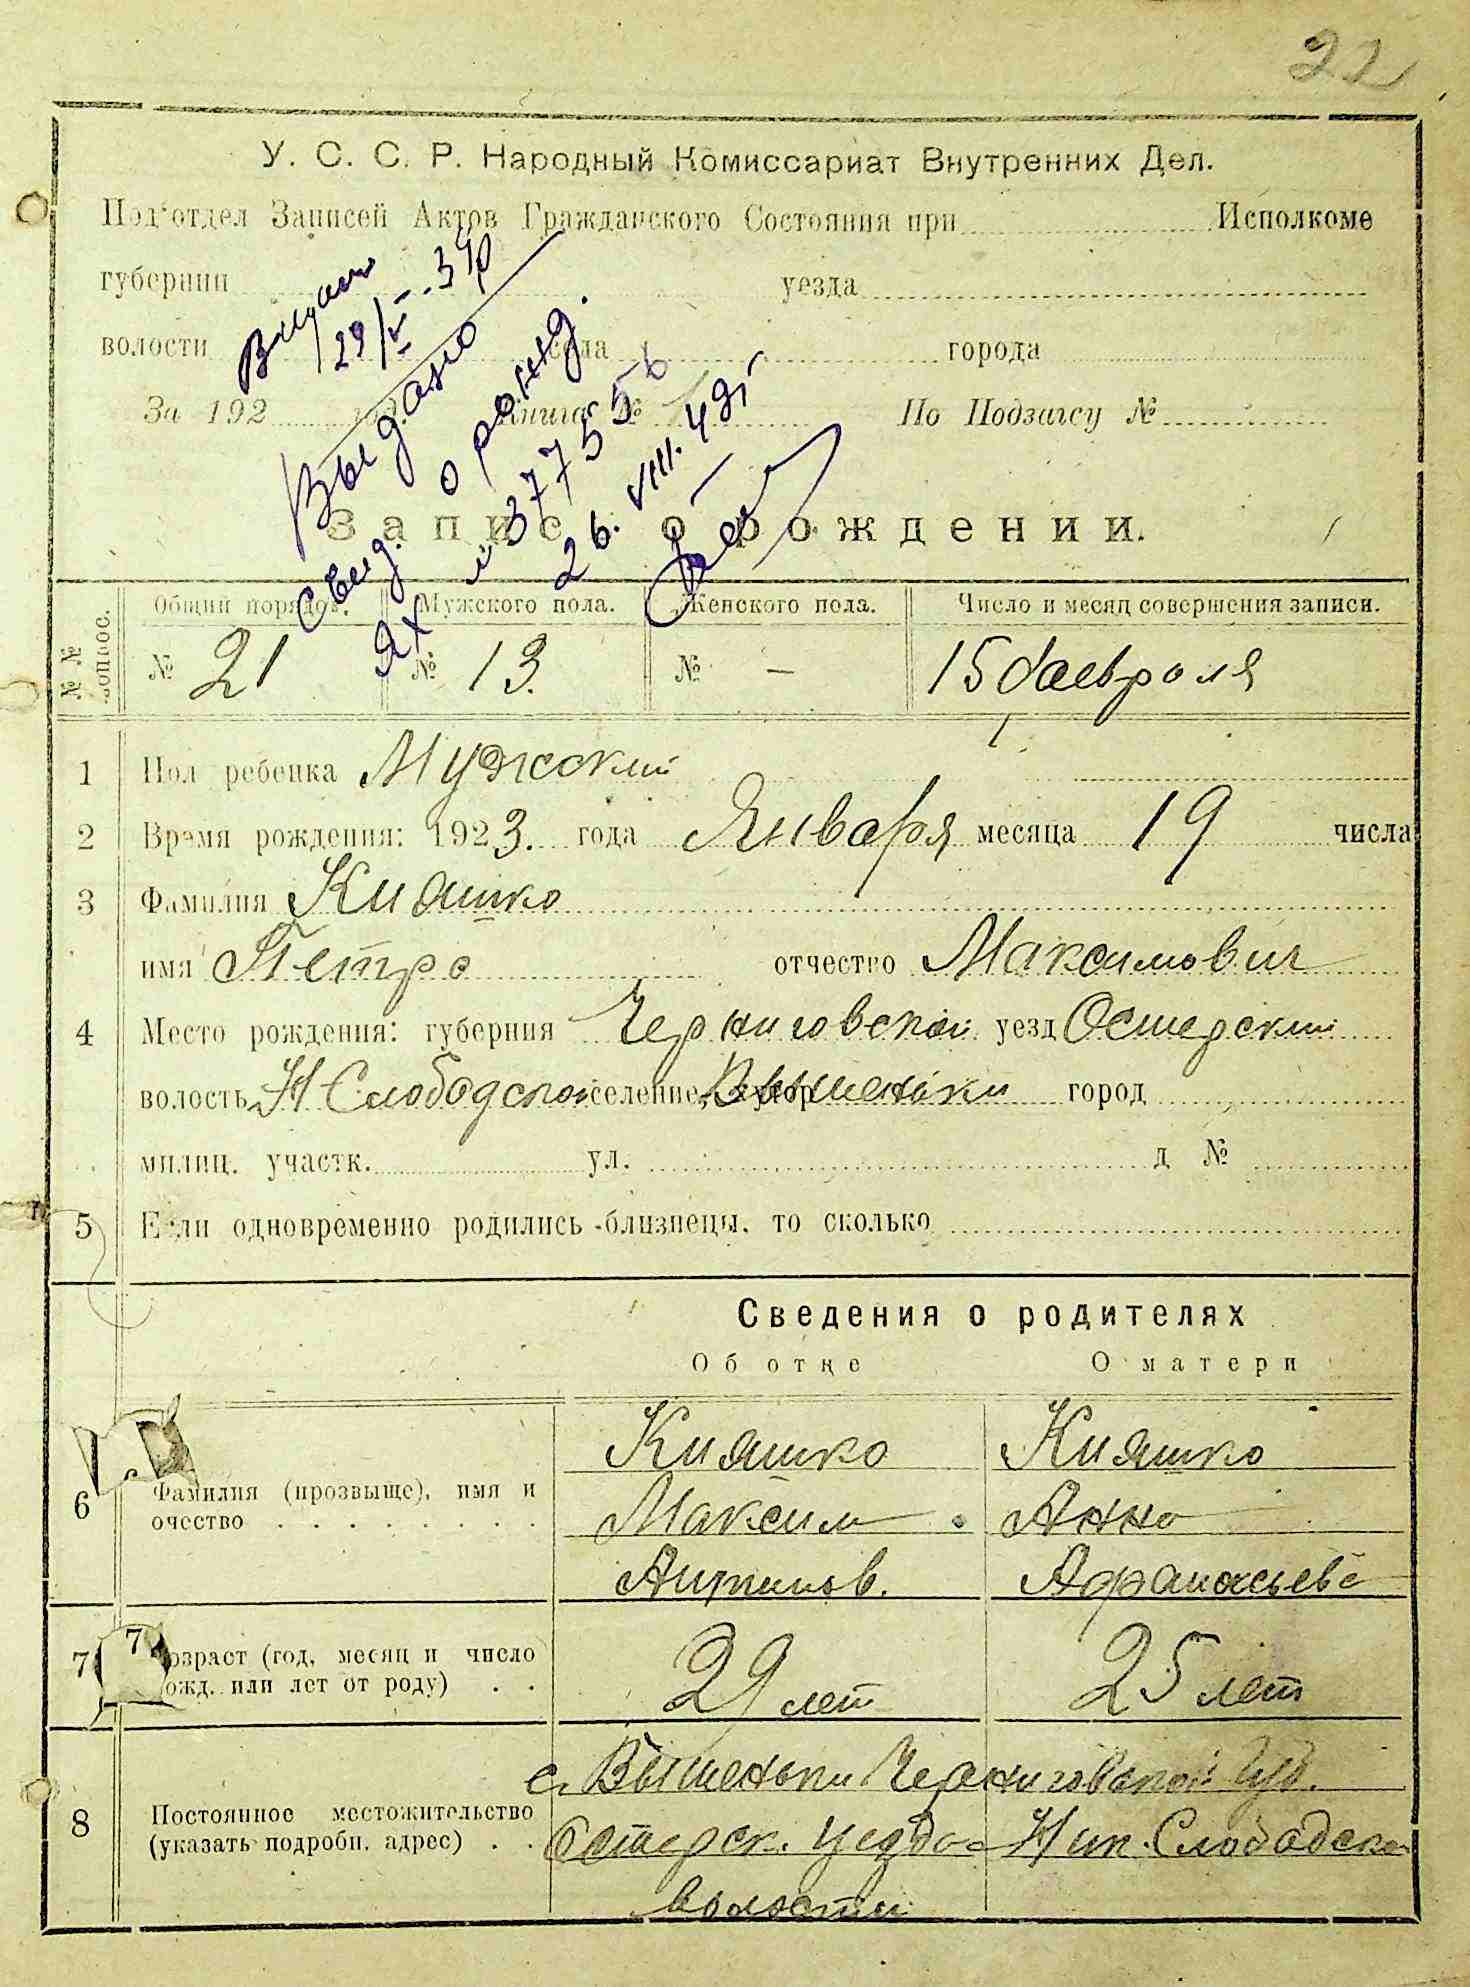 22
У. С. С. Р. Народный Комиссариат Внутренних Дел.
Под'отдел Записей Актов Гражданского Состояния при Исполкоме
губернии уезда
волости села города
За 192 год. Книга № По Подзагсу №
29/V-39р
Выдано
свид. о рожд.
ЯХ № 377556
26.VIII.49г
Запись о рождении.
№№ вопрос.
Общий порядов. Мужского пола. Женского пола. Число и месяц совершения записи.
№ 21 № 13. № - 15 февраля
1 Пол ребенка Мужский
2 Время рождения: 1923. года Января месяца 19 числа
3 Фамилия Кияшко
имя Петро отчество Максимович
4 Место рождения: губерния Черниговской уезд Остерский
волость Н Слободской селение, хутор Вышеньки город
милиц. участк. ул. д №
5 Если одновременно родились близнецы, то сколько
Сведения о родителях
Об отце О матери
Кияшко Кияшко
Максим Анна
6 Фамилия (прозвыще), имя и
очество
Афанасьева
7 7 возраст (год, месяц и число
рожд. или лет от роду) 29 лет 25 лет
с. Вышеньки Черниговской Губ.
8 Постоянное местожительство
(указать подробн. адрес) Остерск. уезда Ник. Слободской
волости